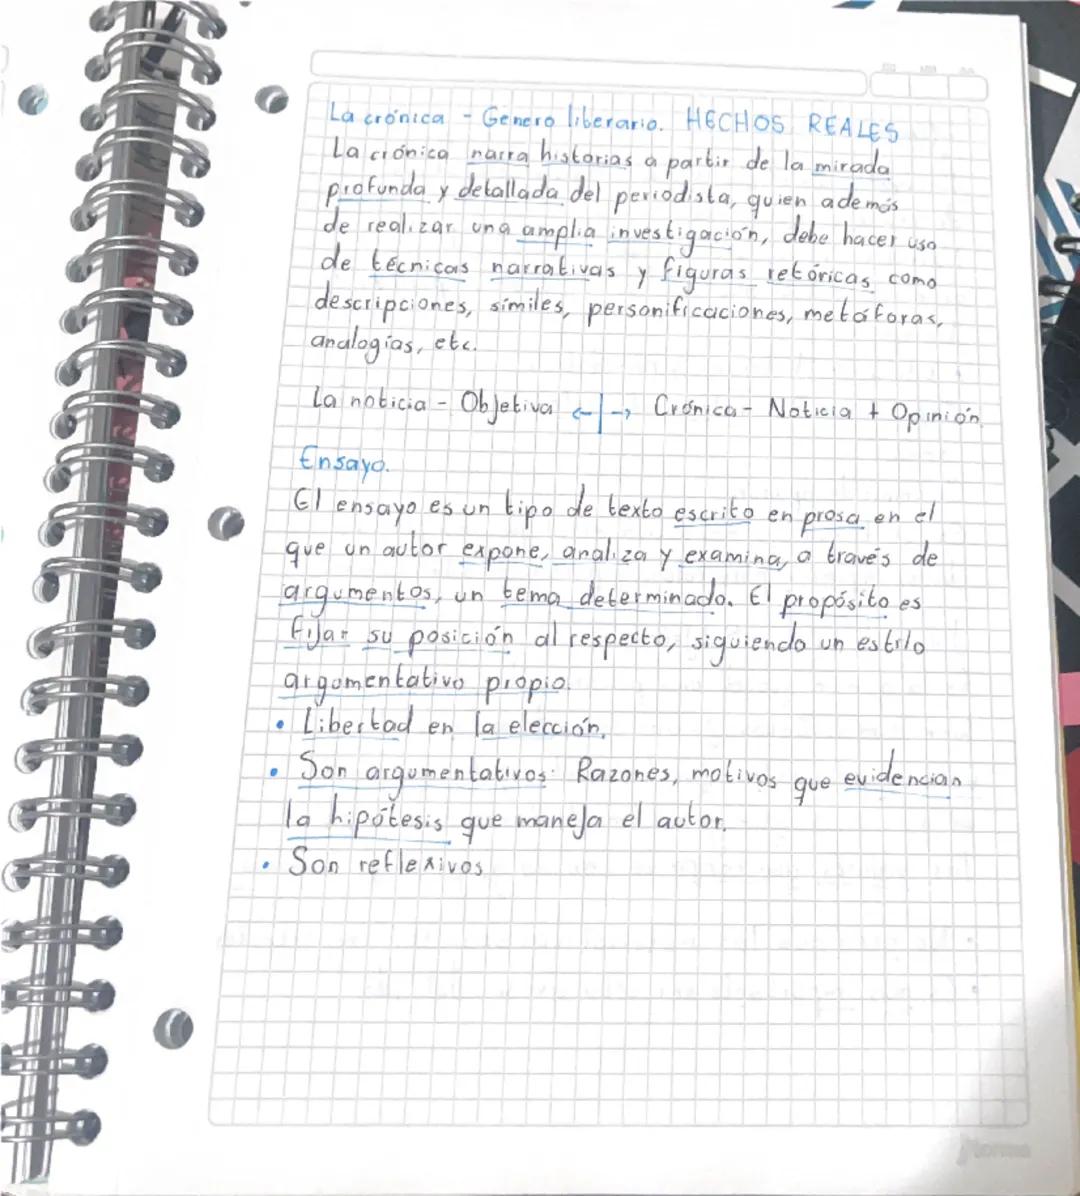 La crónica - Género literario. HECHOS REALES
La crónica narra historias a partir de la mirada
profunda y detallada del periodista, quien además
de realizar una amplia investigación, debe hacer uso
de técnicas narrativas y figuras retóricas como
descripciones, símiles, personificaciones, metáforas,
analogías, etc.
La noticia - Objetiva ←|→ Crónica - Noticia + Opinión
Ensayo.
El ensayo es un tipo de texto escrito en prosa en el
que un autor expone, analiza y examina, a través de
argumentos, un tema determinado. El propósito es
fijar su posición al respecto, siguiendo un estilo
argumentativo propio.
• Libertad en la elección.
• Son argumentativos: Razones, motivos que evidencian
la hipótesis que maneja el autor.
• Son reflexivos